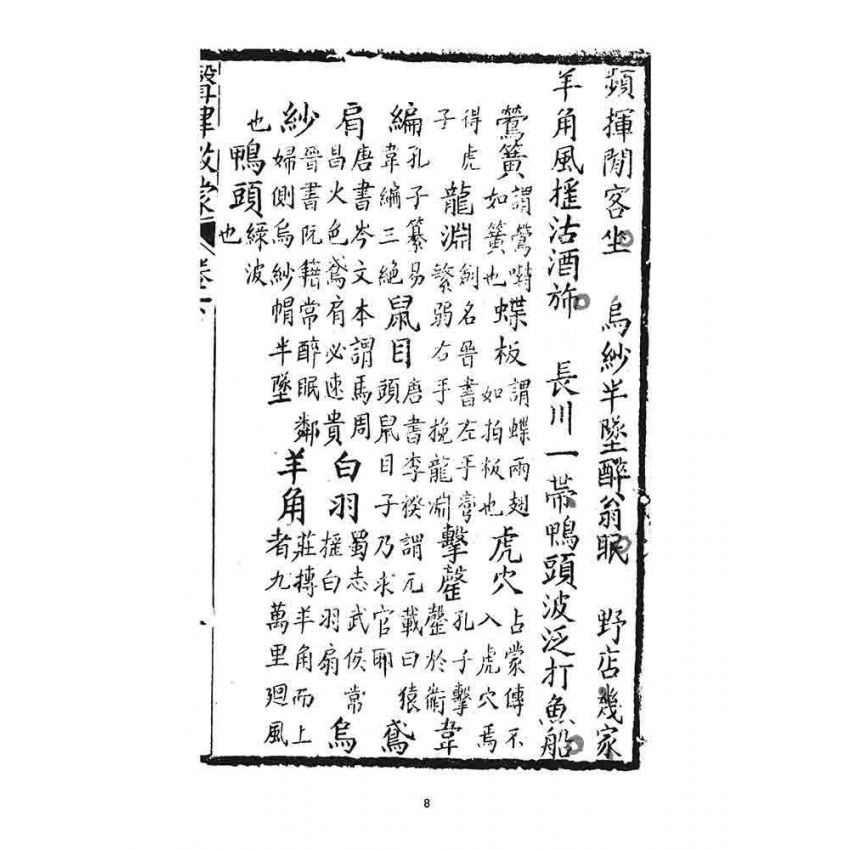 頻揮閒客坐 烏紗半墜醉翁眠 野店幾家
羊角風搖沽酒旆 長川一帶鴨頭波泛打魚船
鶯簧謂鶯囀如簧也蝶板謂蝶兩翅如拍板也虎穴占蒙傳不入虎穴焉
得虎子龍淵劍名晉書左手彎繁弱右手挽龍淵擊磬孔子擊磬於衛韋
編孔子纂易韋編三絕鼠目唐書李揆謂元載曰猿頭鼠目子乃求官耶鳶
肩唐書岑文本謂馬周昌火色鳶肩必速貴白羽蜀志武侯常搖白羽扇烏
紗晉書阮籍常醉眠鄰婦側烏紗帽半墜羊角莊摶羊角而上者九萬里迴風
也鴨頭綠波也
聲律啟蒙 卷一 一
8